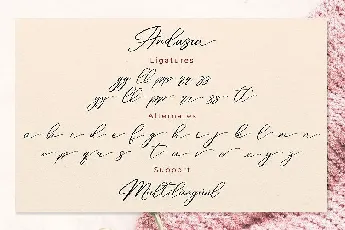 Andasia
Ligatures
gg ll pp rr ss
gg ll pp rr ss tt
Alternates
a b c d e f g h i j k l m n
o p q r s t u v w x y z
Support
Multilingual